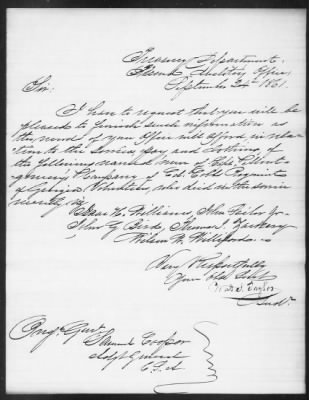 Treasury Department,
Second Auditors Office,
September 24th 1861.
Sir:
I have to request that you will be
pleased to furnish such information as
the records of your Office will afford, in rela-
tion to the Service, pay and clothing of
the following named men of Capt.
Company of Col. Cobb Regiment
of Georgia Volunteers, who died in the service
recently. Viz
Isaac H. Williams, John Jr.
John G. Bird, Thomas
Wilson W. Williford.
Very Respectfully
Your obt. Servt.
W. H. S. Taylor
Audr.
Brig. Genl.
Samuel Cooper
Adjt General
C.S.A